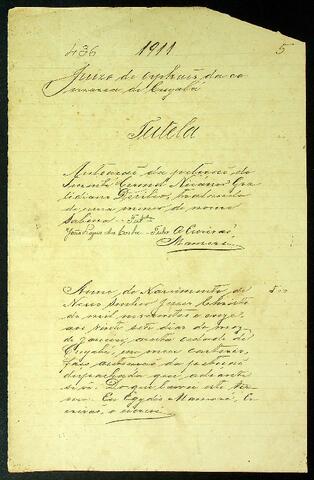 436 1911 5
Juizo de Orphãos da co
marca de Cuyabá
Tutela
Autoação da petição do
Tenente Coronel Nicánor Gra
tidiano Dorileo, tratando
de uma menor de nome
Sabina
da Costa O Escrivão
Mamoré
Anno do Nascimento de
Nosso Senhor Jesus Christo
de mil novecentos e onze,
aos vinte sete dias do mez
de Janeiro, nesta cidade de
Cuyabá, em meu cartorio,
faço autuação da petição
despachada que adiante
se vê. Do que lavrei este ter
mo. Eu Mamoré, Es
crivão, o escrevi